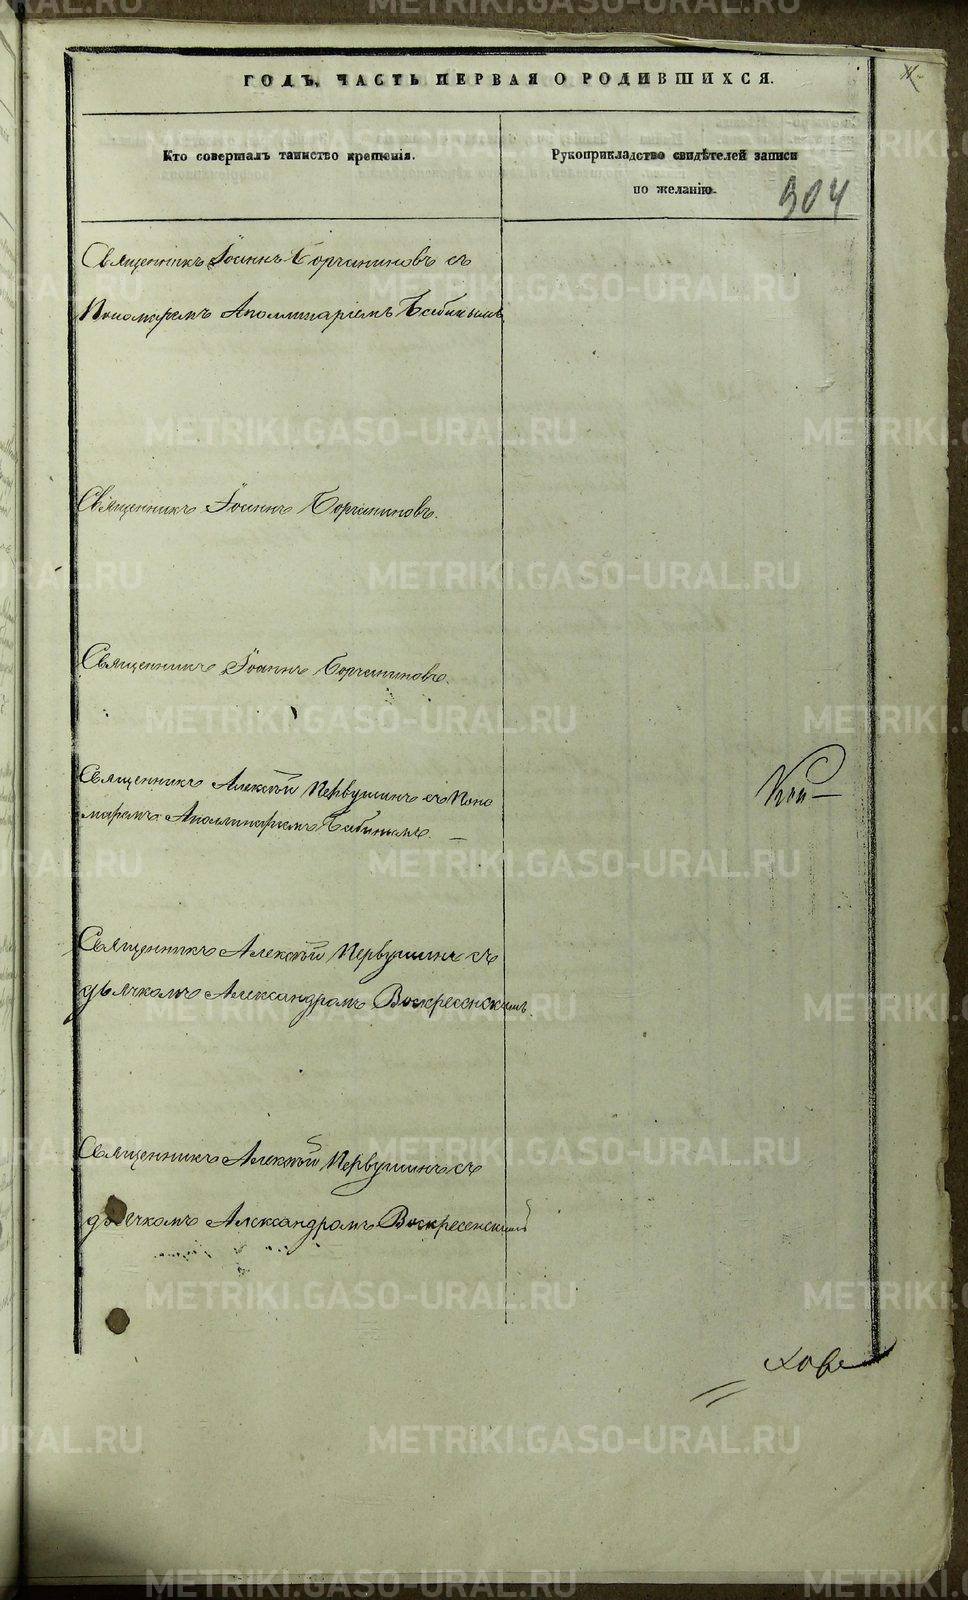 ГОДЪ, ЧАСТЬ ПЕРВАЯ О РОДИВШИХСЯ.
Кто совершалъ таинство крещенія.
Рукоприкладство свидѣтелей записи
по желанію.
304
Священникъ Іоаннъ Борчаниновъ съ
Пономаремъ Аполлинаріемъ Бабинымъ
Священникъ Іоаннъ Борчаниновъ.
Священникъ Іоаннъ Борчаниновъ.
Священникъ Алексѣй Первушинъ съ Поно
маремъ Аполлинаріемъ Бабинымъ.
Священникъ Алексѣй Первушинъ съ
дьячкомъ Александромъ Воскресенскимъ.
Священникъ Алексѣй Первушинъ съ
дьячкомъ Александромъ Воскресенскимъ
METRIKI.GASO-URAL.RU